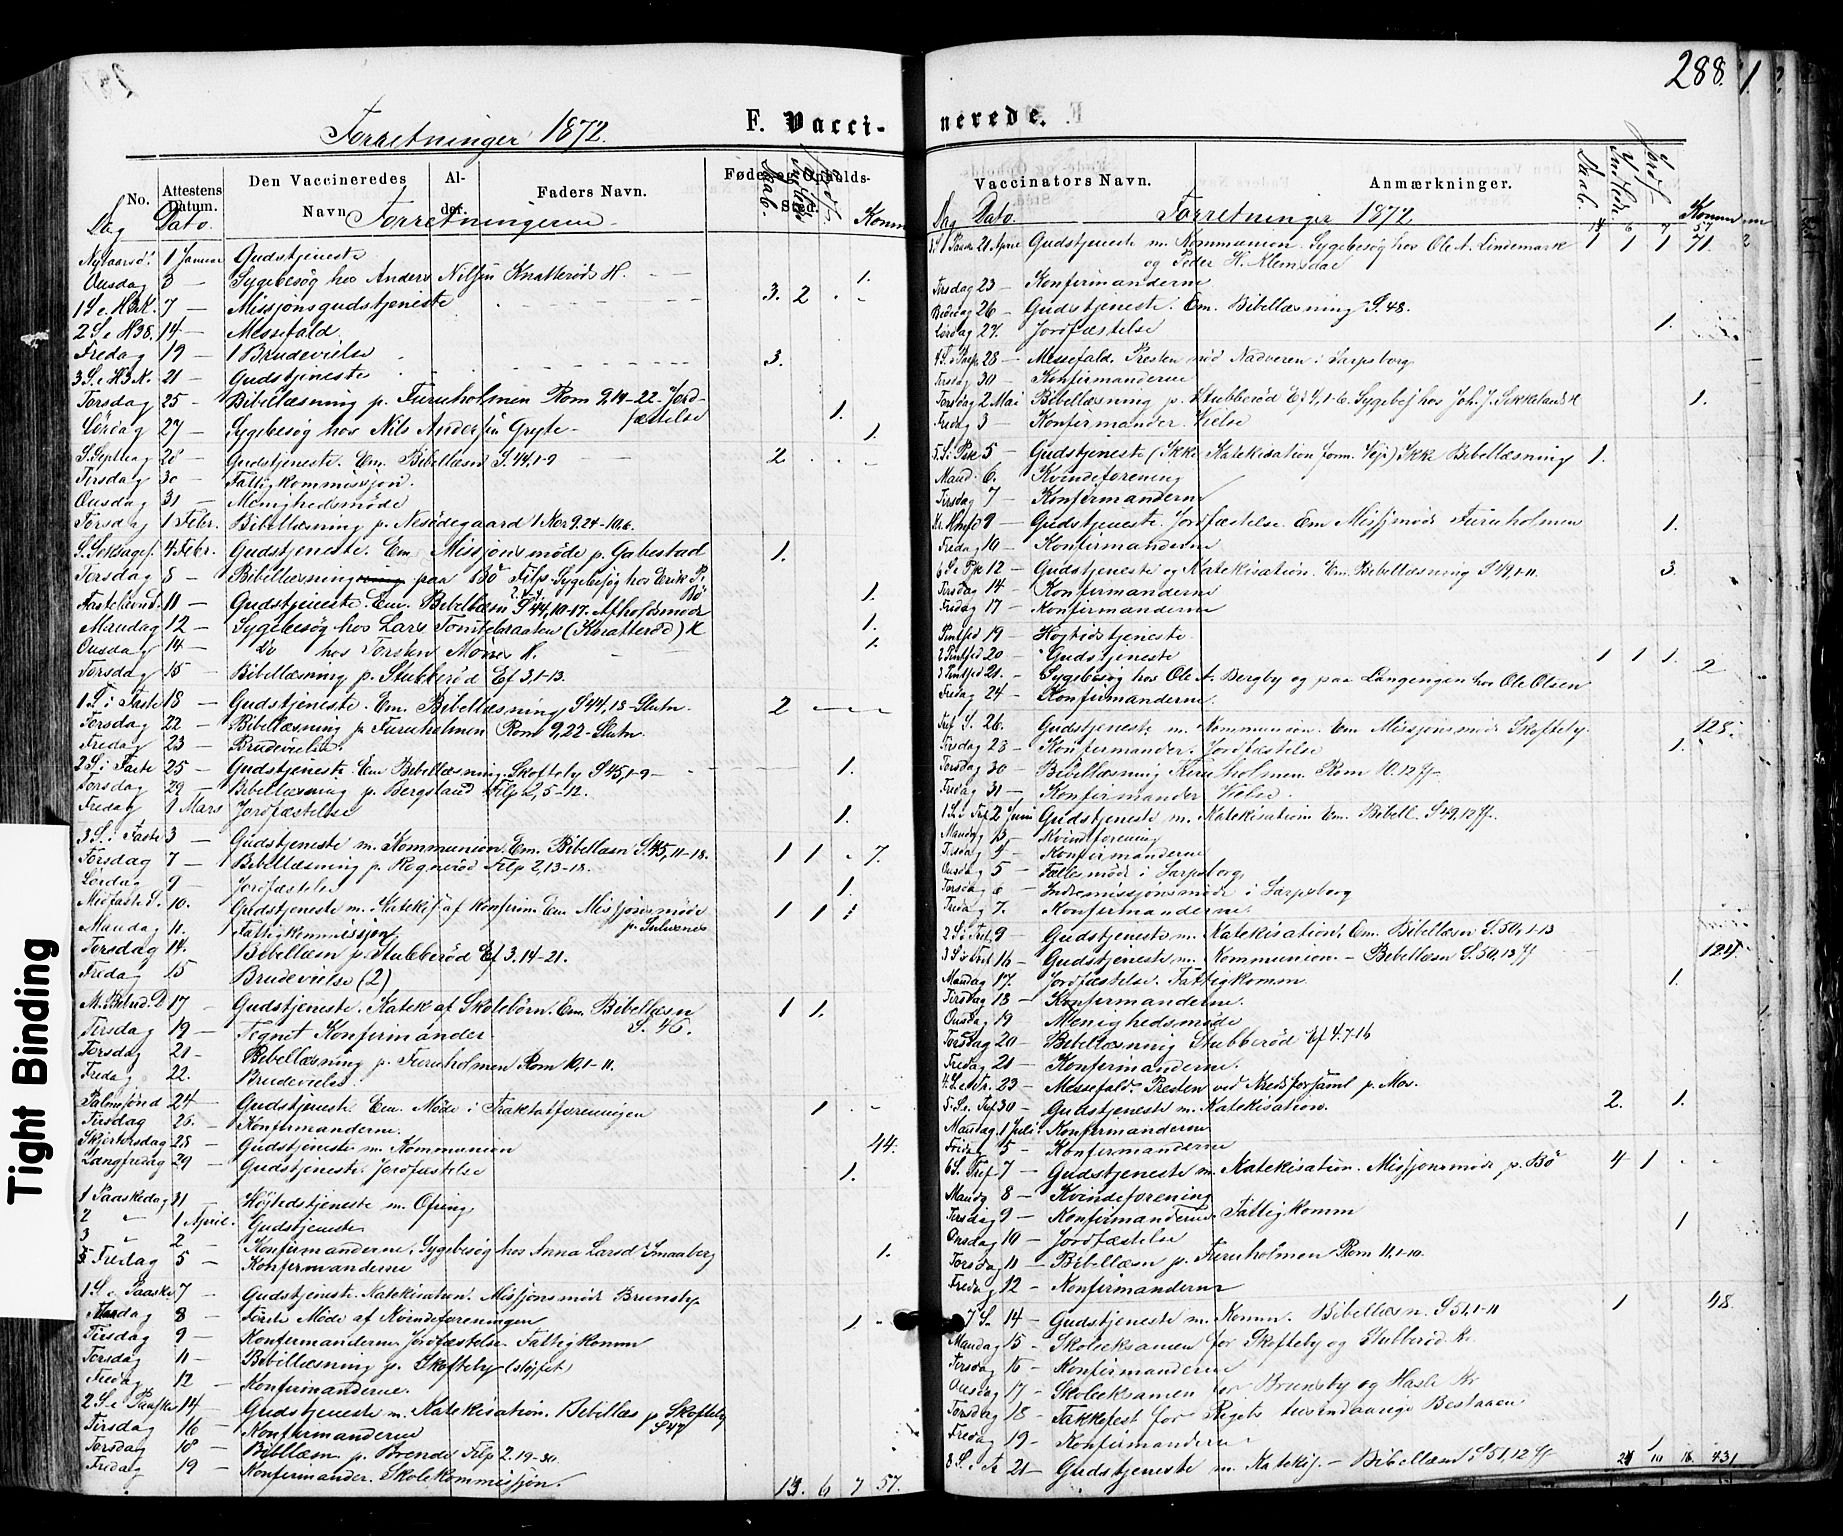 288.
1.
Forretninger 1872.
F. Vacci-
nerede.
No.
Attestens Datum.
Den Vaccineredes Navn
Alder.
Faders Navn.
Føde- og Opholds-Sted.
Daab.
Jordf.
Komm
Dag Dato.
Forretningerne
Nytaarsd. 1 Januar Gudstjeneste
Onsdag 3 — Sygebesøg hos Anders Nilsen Knatterød H. — — 1.
1 S. e. H3K. 7 — Missjonsgudstjeneste 3. 2 . -
2 S. e. H3K. 14 — Messefald.
Fredag 19 — 1 Brudevielse 3.
3 S. e. H3K. 21 — Gudstjeneste
Torsdag 25 — Bibellæsning p. Furuholmen Rom 9,14-22. Jord-
fæstelse 1.
Lørdag 27 — Sygebesøg hos Nils Andersen Gryte - 1.
S. Septuag 28 — Gudstjeneste. Em. Bibellæsn S. 44,1-9 2
Tirsdag 30 — Fattigkommissjon.
Onsdag 31 — Menighedsmøde
Torsdag 1 Febr. Bibellæsning p. Nesødegaard 1 Kor 9.24-10.6.
S. Seksages. 4 Febr. Gudstjeneste. Em Missjonsmøde p. Gabestad 1.
Torsdag 8 — Bibellæsning paa Bø Filp Sygebesøg hos Erik P.
Bø 1.
Fastelavnd. 11 — Gudstjeneste. Em. Bibellæsn S 44,10-17. Afholdsmøde
Mandag 12 — Sygebesøg hos Lars Tomtebraaten (Knatterød) H 1.
Onsdag 14 — Do hos Torsten Moses H. 1.
Torsdag 15 — Bibellæsning p. Stubberød Ef 3,1-13.
1 S. i Faste 18 — Gudstjeneste. Em. Bibellæsning S 44,18-Slutn. 2 - - -
Torsdag 22 — Bibellæsning p. Furuholmen Rom 9,22-Slutn.
Fredag 23 — Brudevielse.
2 S. i Faste 25 — Gudstjeneste Em Bibellæsning Skofteby S 45,1-9 - 1.
Torsdag 29 — Bibellæsning p. Bergsland Filp 2,5-12.
Fredag 1 Mars Jordfæstelse 1.
3 S. i Faste 3 — Gudstjeneste m. Kommunion. Em. Bibellæsn S. 45,11-18. 1 1 - 7.
Torsdag 7 — Bibellæsning p. Rognerød Filp 2,13-18.
Lørdag 9 — Jordfæstelse 1.
Midfaste S. 10. Gudstjeneste m. Katekis af Konfirm. Em Missjonsmøde
p. Sulusnes 1 1
Mandag 11. Fattigkommissjon
Torsdag 14. Bibellæsn p. Stubberød Ef 3.14-21.
Fredag 15 Brudevielse (2)
M. Bebud. D 17 — Gudstjeneste. Katek af Skolebørn. Em. Bibellæsn
S. 46. 1 1.
Tirsdag 19 — Tegnet Konfirmander.
Torsdag 21 — Bibellæsning p. Furuholmen Rom 10,1-11.
Fredag 22. Brudevielse.
Palmsønd 24 — Gudstjeneste. Em. Møde i Traktatforeningen 1 . -
Tirsdag 26. — Konfirmanderne.
Skjærtorsdag 28 — Gudstjeneste m. Kommunion 44.
Langfredag 29 — Gudstjeneste. Jordfæstelse 1.
1 Paaskedag 31 — Højtidstjeneste m. Ofring
2 " - 1 April. Gudstjeneste
3 " 2 — Konfirmanderne. Sygebesøg hos Anna Larsd Smaaberg 1.
Fredag 5 — Konfirmanderne
1 S. e. Paaske 7 — Gudstjeneste. Katekisation. Missjonsmøde Brunsby
Mandag 8 — Første Møde af Kvindeforeningen
Tirsdag 9 — Konfirmanderne Jordfæstelse Fattigkomm 1 -
Torsdag 11 — Bibellæsning p. Skofteby (sløjfet)
Fredag 12 — Konfirmanderne.
2 S. e. Paaske 14 — Gudstjeneste m. Katekisation. Bibellæs p. Skofteby
S 47
Tirsdag 16 — Konfirmanderne
Torsdag 18 — Bibellæsn p. Brende Filp 2.19-30.
Fredag 19 — Konfirmander. Skolekommissjon.
13. 6 7 57.
Vaccinators Navn.
Anmærkninger.
Daab.
Jordf.
Komm
Dag Dato.
Forretninger 1872
13 6 7 57
21 April Gudstjeneste m. Kommunion. Sygebesøg hos Ole A. Lindemark 1 1 1 71. 2
og Peder H. Klemsdal
Tirsdag 23 — Konfirmanderne
26 — Gudstjeneste. Em. Bibellæsning S. 48.
Lørdag 27. Jordfæstelse 1.
28 — Messefald. Presten ved Nadveren i Sarpsborg
Tirsdag 30 — Konfirmanderne
Torsdag 2 Mai Bibellæsning p. Stubberød Ef 4,1-6. Sygebes hos Joh. J. Sekkelund H 1.
Fredag 3 — Konfirmander. Vielse
5 S. e. Pske 5 — Gudstjeneste (Ikke Katekisation form. Veje) Ikke Bibellæsning 1.
Mand. 6. Kvindeforening
Tirsdag 7 — Konfirmanderne
Kr. Hmfd 9 — Gudstjeneste. Jordfæstelse. Em Missjmøde Furuholmen 1.
Fredag 10 — Konfirmanderne
6 S. e. Pske 12 — Gudstjeneste og Katekisation. Em. Bibellæsning S 49,1-11. 3.
Tirsdag 14 — Konfirmanderne
Fredag 17 — Konfirmanderne
Pintsed 19 — Højtidstjeneste
2 Pintsed 20 — Gudstjeneste 1 1 1.
3 Pintsed 21. — Sygebesøg hos Ole A. Bergby og paa Langengen hos Ole Olsen 2
Fredag 24 — Konfirmanderne.
Tref. S. 26. Gudstjeneste m. Kommunion. Em Missjonsmøde Skofteby. 128.
Tirsdag 28 — Konfirmander. Jordfæstelse 1.
Torsdag 30 — Bibellæsning Furuholmen. Rom 10.12 ff -
Fredag 31 — Konfirmander Vielse.
1 S. e. Tref 2 Juni Gudstjeneste m. Katekisation Em. Bibell. S 49,12 ff.
Mandag 3 — Kvindeforening
Tirsdag 4 — Konfirmanderne
Onsdag 5 — Fællesmøde i Sarpsborg.
Torsdag 6 — Indremissjonsmøde i Sarpsborg
Fredag 7. — Konfirmanderne.
2 S. e. Tref. 9 — Gudstjeneste m. Katekisation. Em. Bibellæsn S. 50,1-13
3 S. e. Tref 16 — Gudstjeneste m. Kommunion. - Bebellæsn S. 50,13 ff 124.
Mandag 17. Jordfæstelse. Fattigkomm 1.
Tirsdag 18 — Konfirmanderne.
Onsdag 19 Menighedsmøde
Torsdag 20 — Bibellæsning Stubberød Ef 4.7-16
Fredag 21 — Konfirmanderne.
4. S. e. Tr. 23 — Messefald. Presten ved Kredsforsaml p. Mos.
5. S. e. Tref 30 — Gudstjeneste m. Katekisation. 2. 1.
Mandag 1 Juli Konfirmanderne
Fredag 5 — Konfirmanderne
6 S. Tref 7 — Gudstjeneste m. Katekisation. Missjonsmøde p. Bø 4 1 . .
Mandg 8 — Kvindeforening
Tirsdag 9 — Konfirmanderne. Fattigkomm
Onsdag 10 — Jordfæstelse 1
Torsdag 11 — Bibellæsn p. Furuholmen Rom 11,1-10.
Fredag 12 — Konfirmanderne
7 S. 14 — Gudstjeneste m. Komm. Bibellæsn. S 51,1-11 1 48.
Mandag 15 — Skoleeksamen for Skofteby og Stubberød Kr.
Tirsdag 16 — Konfirmanderne
Onsdag 17 — Skoleeksamen for Brunsby og Hasle Kr
Torsdag 18 — Takkefest for Rigets tusindaarige Bestaaen
Fredag 19 — Konfirmanderne
8 S. e. Tr 21 — Gudstjeneste m. Katekis. - Bibellæsn S 51,12 ff 24 10 16 431
Tight Binding